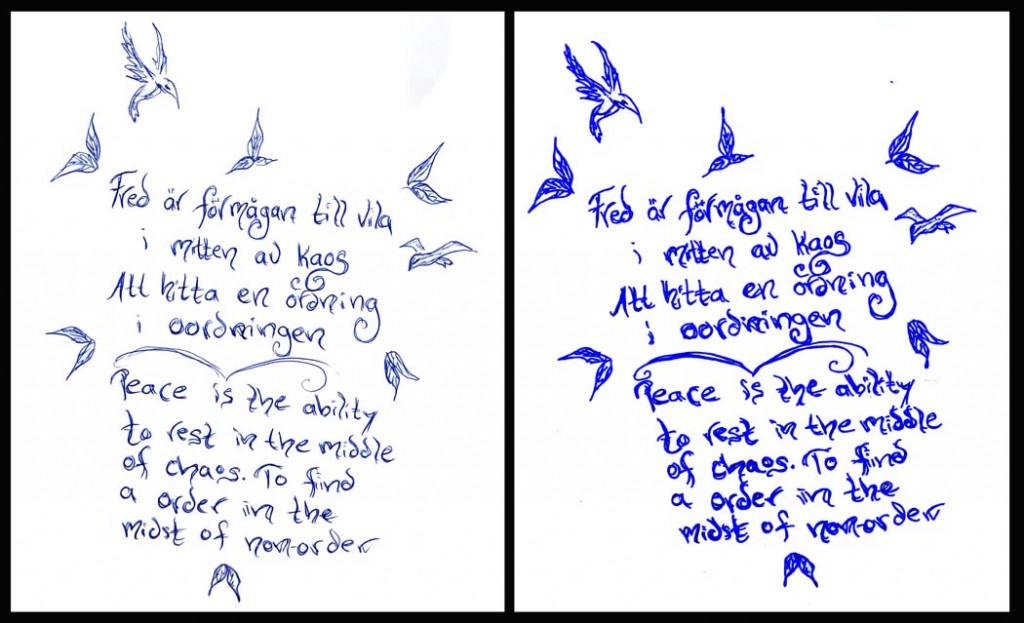 Fred är förmågan till vila
i mitten av kaos
Att hitta en ordning
i oordningen
Peace is the ability
to rest in the middle
of chaos. To find
a order in the
midst of non-order
Fred är förmågan till vila
i mitten av kaos
Att hitta en ordning
i oordningen
Peace is the ability
to rest in the middle
of chaos. To find
a order in the
midst of non-order